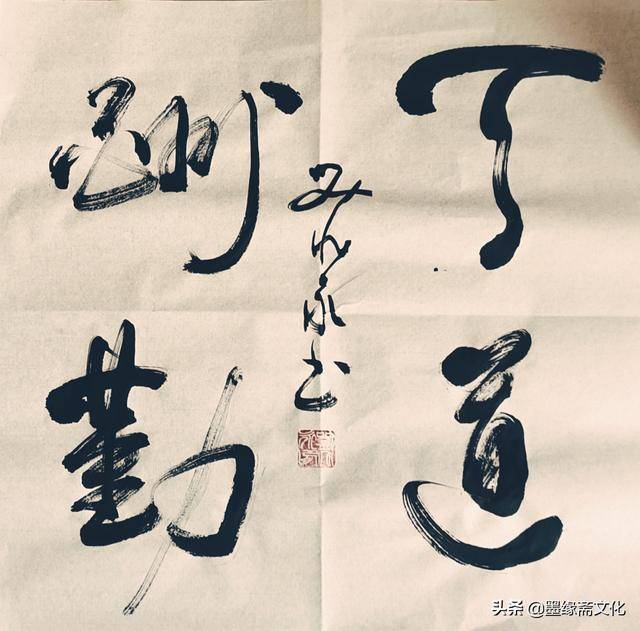 天道
酬勤
书
头条 @墨缘斋文化